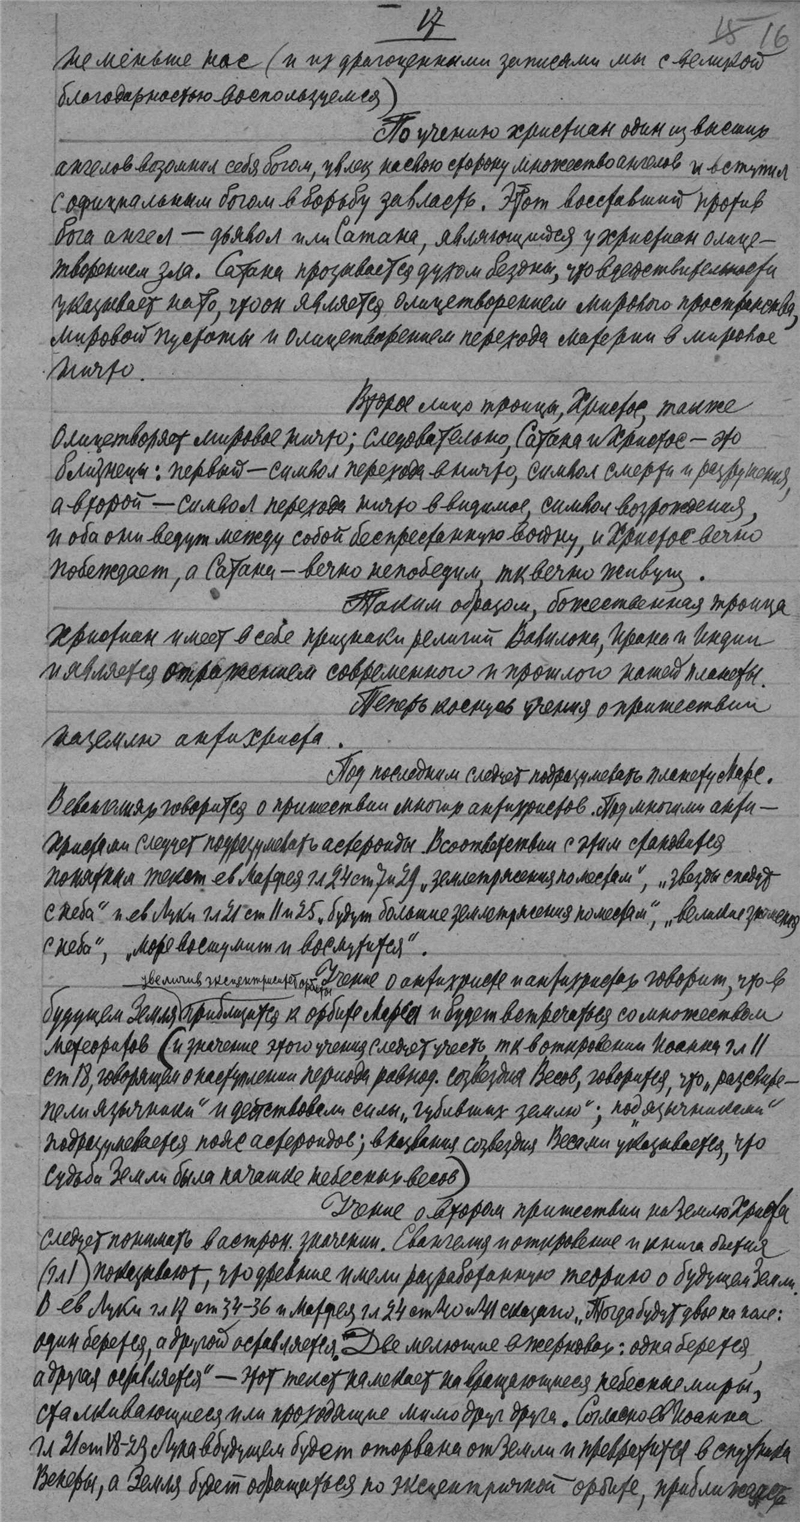 17
15 16
не меньше нас (и их драгоценными записями мы с великой
благодарностью воспользуемся)
По учению христиан один из высших
ангелов возомнил себя богом, увлек на свою сторону множество ангелов и вступил
с официальным богом в борьбу за власть. Этот восставший против
бога ангел — дьявол или Сатана, являющийся у христиан олице-
творением зла. Сатана прозывается духом бездны, что в действительности
указывает на то, что он является олицетворением мирового пространства,
мировой пустоты и олицетворением перехода материи в мировое
ничто.
Второе лицо троицы, Христос, также
олицетворяет мировое ничто; следовательно, Сатана и Христос — это
близнецы: первый — символ перехода в ничто, символ смерти и разрушения,
а второй — символ перехода ничто в видимое, символ возрождения,
и оба они ведут между собой беспрестанную войну, и Христос вечно
побеждает, а Сатана — вечно непобедим, тк вечно живущ.
Таким образом, божественная троица
христиан имеет в себе признаки религий Вавилона, Ирана и Индии
и является отражением современного и прошлого нашей планеты.
Теперь коснусь учения о пришествии
на землю антихриста.
Под последним следует подразумевать планету Марс.
В евангелиях говорится о пришествии многих антихристов. Под многими анти-
христами следует подразумевать астероиды. В соответствии с этим становится
понятен текст ев Матфея гл 24 ст 7 и 29 „землетрясения по местам“, „звезды спадут
с неба“ и ев Луки гл 21 ст 11 и 25 „будут большие землетрясения по местам“, „великие знамения
с неба“, „море восшумит и возмутится“.
Учение о антихристе и антихристах говорит, что в
увеличив эксцентриситет орбиты
будущем Земля приблизится к орбите Марса и будет встречаться со множеством
метеоритов (и значение этого учения следует учесть тк в откровении Иоанна гл 11
ст 18, говорящем о наступлении периода равнод. созвездия Весов, говорится, что „рассвире-
пели язычники“ и действовали силы „губивших землю“; под „язычниками“
подразумевается пояс астероидов; в названии созвездия Весами указывается, что
судьба Земли была на чашке небесных весов)
Учение о втором пришествии на Землю Христа
следует понимать в астрон. значении. Евангелия и откровение и книга бытия
(гл 1) показывают, что древние имели разработанную теорию о будущей Земли.
В ев Луки гл 17 ст 34-36 и Матфея гл 24 ст 40 и 41 сказано „Тогда будут двое на поле:
один берется, а другой оставляется. Две мелющие в жерновах: одна берется,
а другая оставляется“ — этот текст намекает на вращающиеся небесные миры,
сталкивающиеся или проходящие мимо друг друга. Согласно ев Иоанна
гл 21 ст 18-23 Луна в будущем будет оторвана от Земли и превратится в спутника
Венеры, а Земля будет обращаться по эксцентричной орбите,